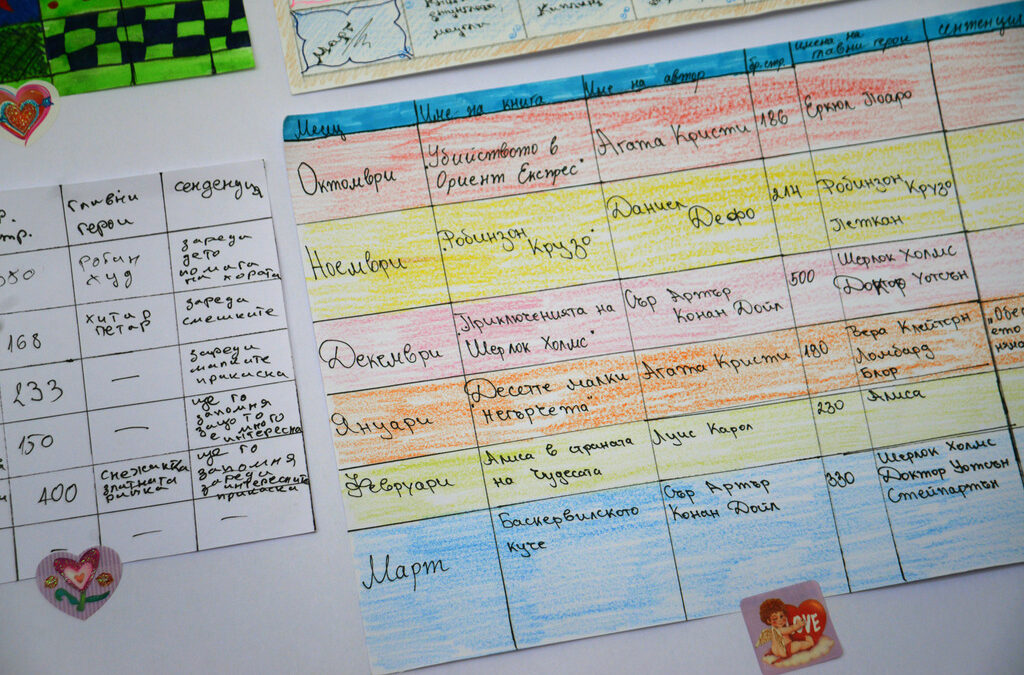 март
Месец
Име на книга
Име на автор
бр. стр.
имена на
главни герои
сентенция
Октомври
"Убийството в
Ориент Експрес"
Агата Кристи
186
Еркюл Поаро
Ноември
"Робинзон
Крузо"
Даниел
Дефо
214
Робинзон
Крузо
Петкан
Декември
"Приключенията на
Шерлок Холмс"
Сър Артър
Конан Дойл
500
Шерлок Холмс
Доктор Уотсън
Януари
Десетте малки
"негърчета"
Агата Кристи
180
Вера Клейтърн
Ломбард
Блор
Февруари
Алиса в страната
на Чудесата
Луис Карол
230
Алиса
Март
Баскервилското
куче
Сър Артър
Конан Дойл
330
Шерлок Холмс
Доктор Уотсън
Стейпартън
главни
герои
сенденция
робин
худ
зареди
дето
помага
на хората
168
хитар
петар
зареди
смешките
233
—
зареди
малките
прикаска
150
—
ще го
запомня
защото
е много
интересна
400
снежинка
златната
рипка
ще го
запомня
зареди
интересните
прикаска
—
—
LOVE